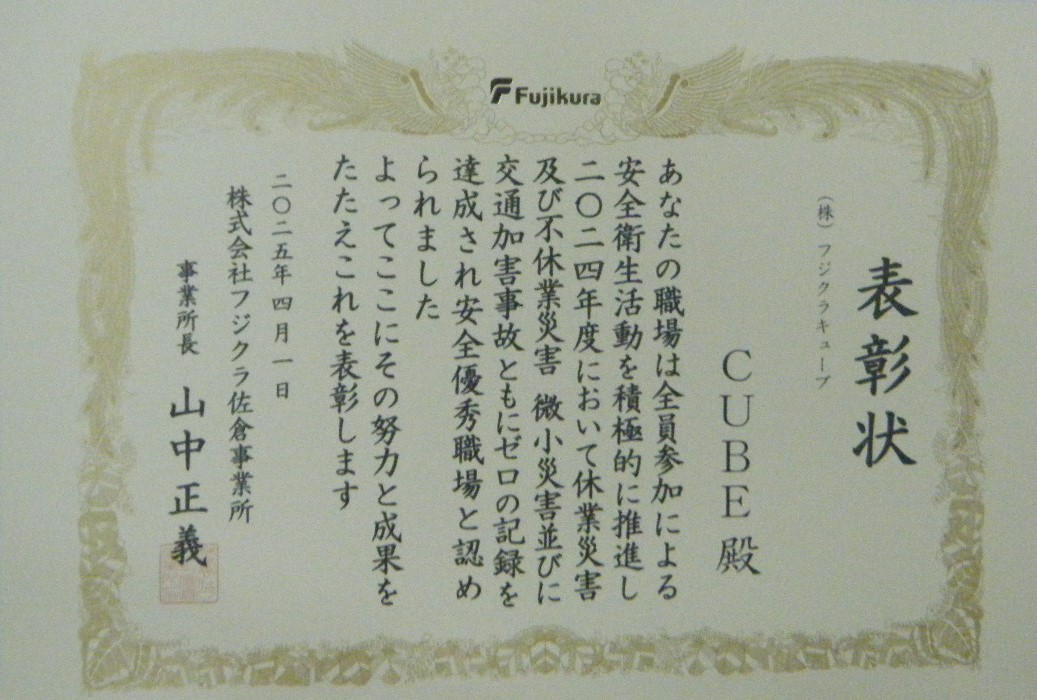 Fujikura
表彰状
(株)フジクラキューブ
CUBE殿
あなたの職場は全員参加による
安全衛生活動を積極的に推進し
二〇二四年度において休業災害
及び不休業災害 微小災害並びに
交通加害事故ともにゼロの記録を
達成され安全優秀職場と認め
られました
よってここにその努力と成果を
たたえこれを表彰します
二〇二五年四月一日
株式会社フジクラ佐倉事業所
事業所長 山中正義